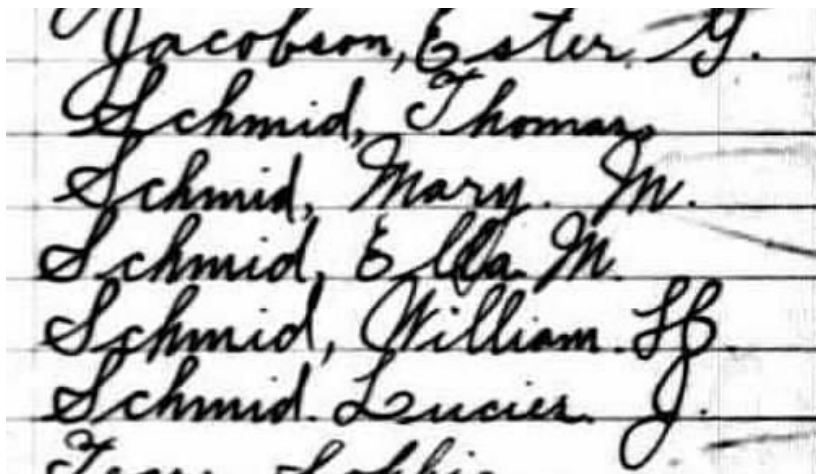 Jacobson, Ester. G.
Schmid, Thomas,
Schmid, Mary. M.
Schmid, Ella. M.
Schmid, William.
Schmid. Lucies. J.
Sophie